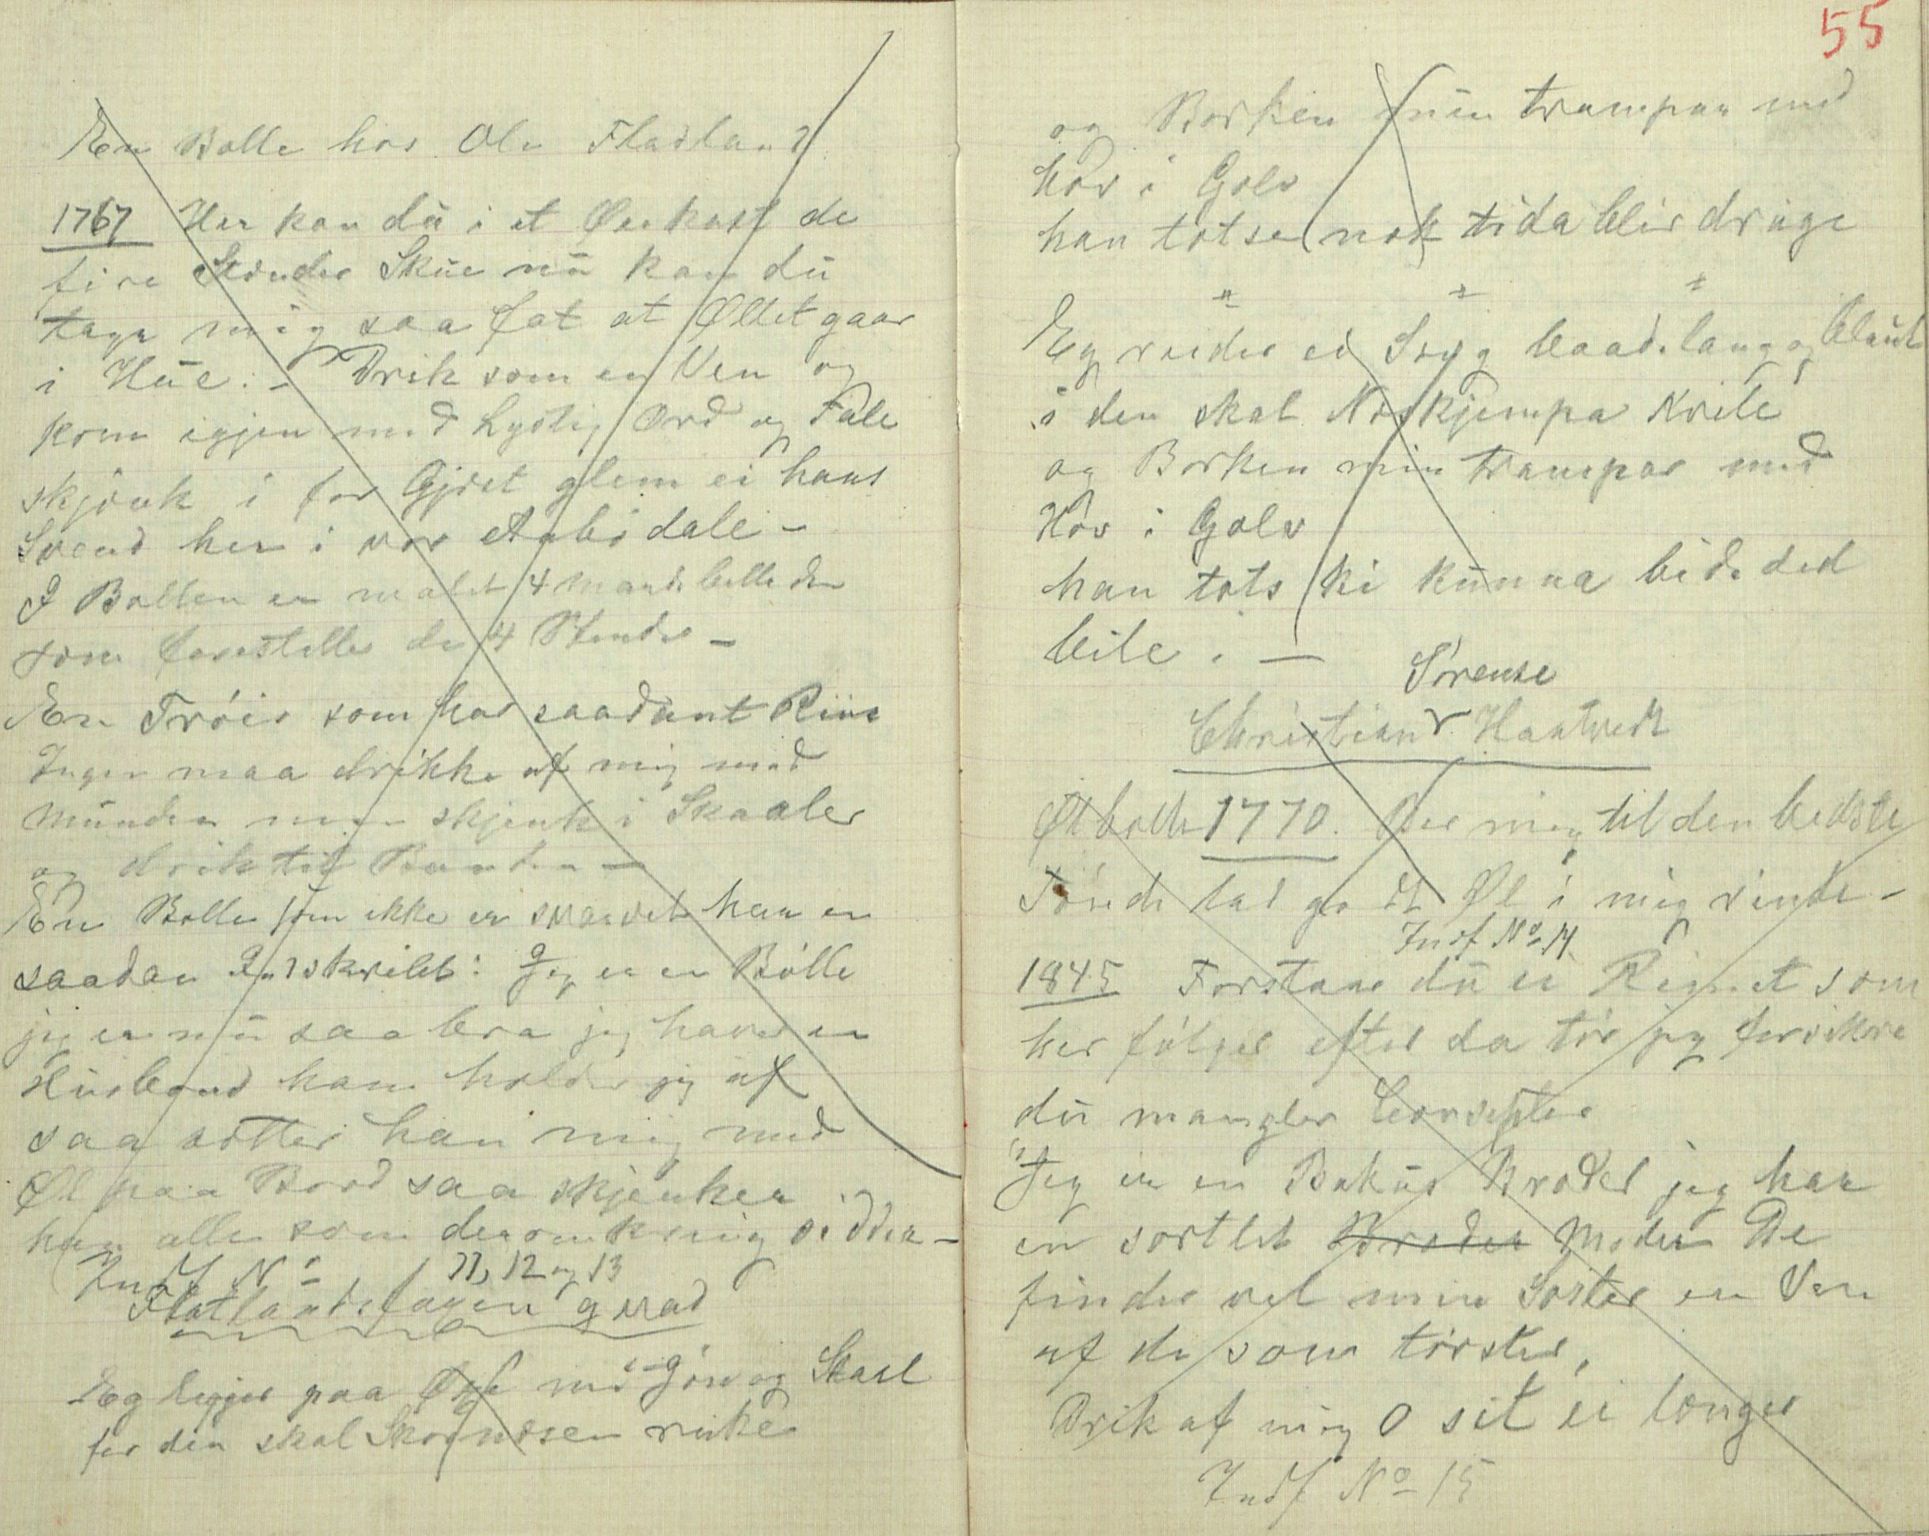 En Bolle hos Ole Fladland
1767 Her kan dú i et Øiekast de
fire Stænder Skúe nú kan dú
tage mig saa fat at Øllet gaar
i Húe. – Drik som en Ven og
kom igjen med Lystig Ord og Tale
skjænk i for Gjæst glem ei hans
Svend her i vor dale –
I Bollen er malet 4 Mandsbilleder
som forestiller de 4 Stænder –
En Trøis som har saadant Riim
Ingen maa drikke af mig med
Múnden men skjenk i Skaaler
og drik til Bunden –
En Bolle som ikke er svarvet har en
saadan Indskrivlst: Jeg er en Bólle
jeg er nú saa bra jeg haver en
Húsbond ham holder jeg af
saa sætter han mig med
Øl paa Bord saa skjenker
han alle som deromkring sidder –
Indf No 11, 12 og 13
Flatlandsfagen qvad
Eg ligger paa med Jón og Staal
for den skal ruke
55
og Borken min trampar med
hov i Golv
han totse nok tida blir drúge
Eg reider ei Seng baade lang og blaut
i den skal Noskjempa kvile
og Borken min trampar med
Hov i Golv
han tots ki kúnna bide ded
bile. –
Sørense
Christian Haatvedt
Ølbolle 1770. Ber mig til den bedste
Tønde lad godt Øl i mig rinde –
Indf No 14
1845 Forstaar dú ei Rimet som
her følger efter da tør jeg forsikre
dú mangler Consepter
"Jeg er en Bakús Broder jeg har
en sortlet Broder Moder De
finder vel min Søster en Ven
af de som tørster,
Drik af mig O sit ei længer
Indf No 15